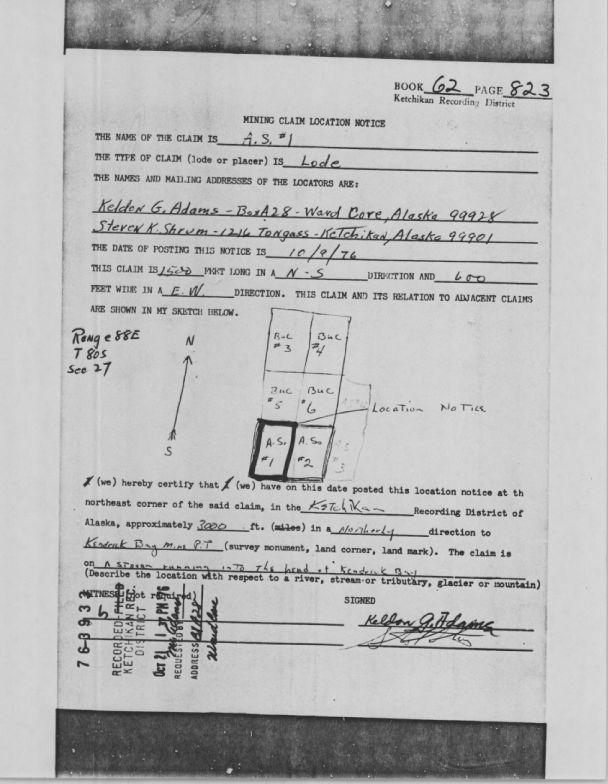 BOOK 62 PAGE 823
Ketchikan Recording District
MINING CLAIM LOCATION NOTICE
THE NAME OF THE CLAIM IS A.S. #1
THE TYPE OF CLAIM (lode or placer) IS Lode
THE NAMES AND MAILING ADDRESSES OF THE LOCATORS ARE:
Keldon G. Adams - Box A28 - Ward Cove, Alaska 99928
Steven K. Shrum - 1216 Tongass - Ketchikan, Alaska 99901
THE DATE OF POSTING THIS NOTICE IS 10/9/76
THIS CLAIM IS 1500 FEET LONG IN A N-S DIRECTION AND 600
FEET WIDE IN A E.W. DIRECTION. THIS CLAIM AND ITS RELATION TO ADJACENT CLAIMS
ARE SHOWN IN MY SKETCH BELOW.
Range 88E
T 80S
Sec 27
N
S
Buc #3
Buc #4
Buc #5
Buc #6
Location Notice
A.S. #1
A.S. #2
A.S. #3
I (we) hereby certify that I (we) have on this date posted this location notice at th
northeast corner of the said claim, in the Ketchikan Recording District of
Alaska, approximately 3000 ft. (miles) in a Northerly direction to
Kendrick Bay (survey monument, land corner, land mark). The claim is
on A stream running into the head of Kendrick Bay
(Describe the location with respect to a river, stream or tributary, glacier or mountain)
WITNESS (not required)
SIGNED
Keldon G. Adams
76-3933
RECORDED-FILED
KETCHIKAN REC.
DISTRICT
Oct 21 PM 1976
REQUESTED BY
ADDRESS Box A28
Ward Cove